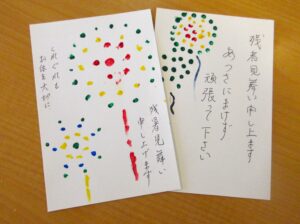 残暑見舞い申し上ます
あつさにまけず
頑張って下さい
残暑見舞い
申し上げます
くれぐれも
お体を大切に